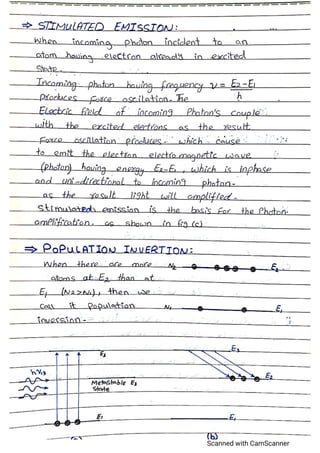 ⇒ STIMULATED EMISSION:
When incoming photon incident to an
atom having electron already in excited
state.
Incoming photon having frequency ν = E2-E1
h
produces force oscilation. The
Electric field of incoming Photon's couple
with the excited elertrons as the result
force oscillation produces. which cause
to emit the electron electromagnetic wave
(photon) having energy E2-E1, which is Inphase
and uni-directional to incoming photon.
as the result light will amplified.
Stimulated emission is the basis for the Photon-
amplification. as shown in fig (c)
⇒ POPULATION INVERTION:
When there are more N2 E2
atoms at E2 than at
E1 (N2>N1), then we
call it Population N1 E1
inversion-
E3 E3
hν13 E2
Metastable E2
state
E1 E1
(b)
Scanned with CamScanner